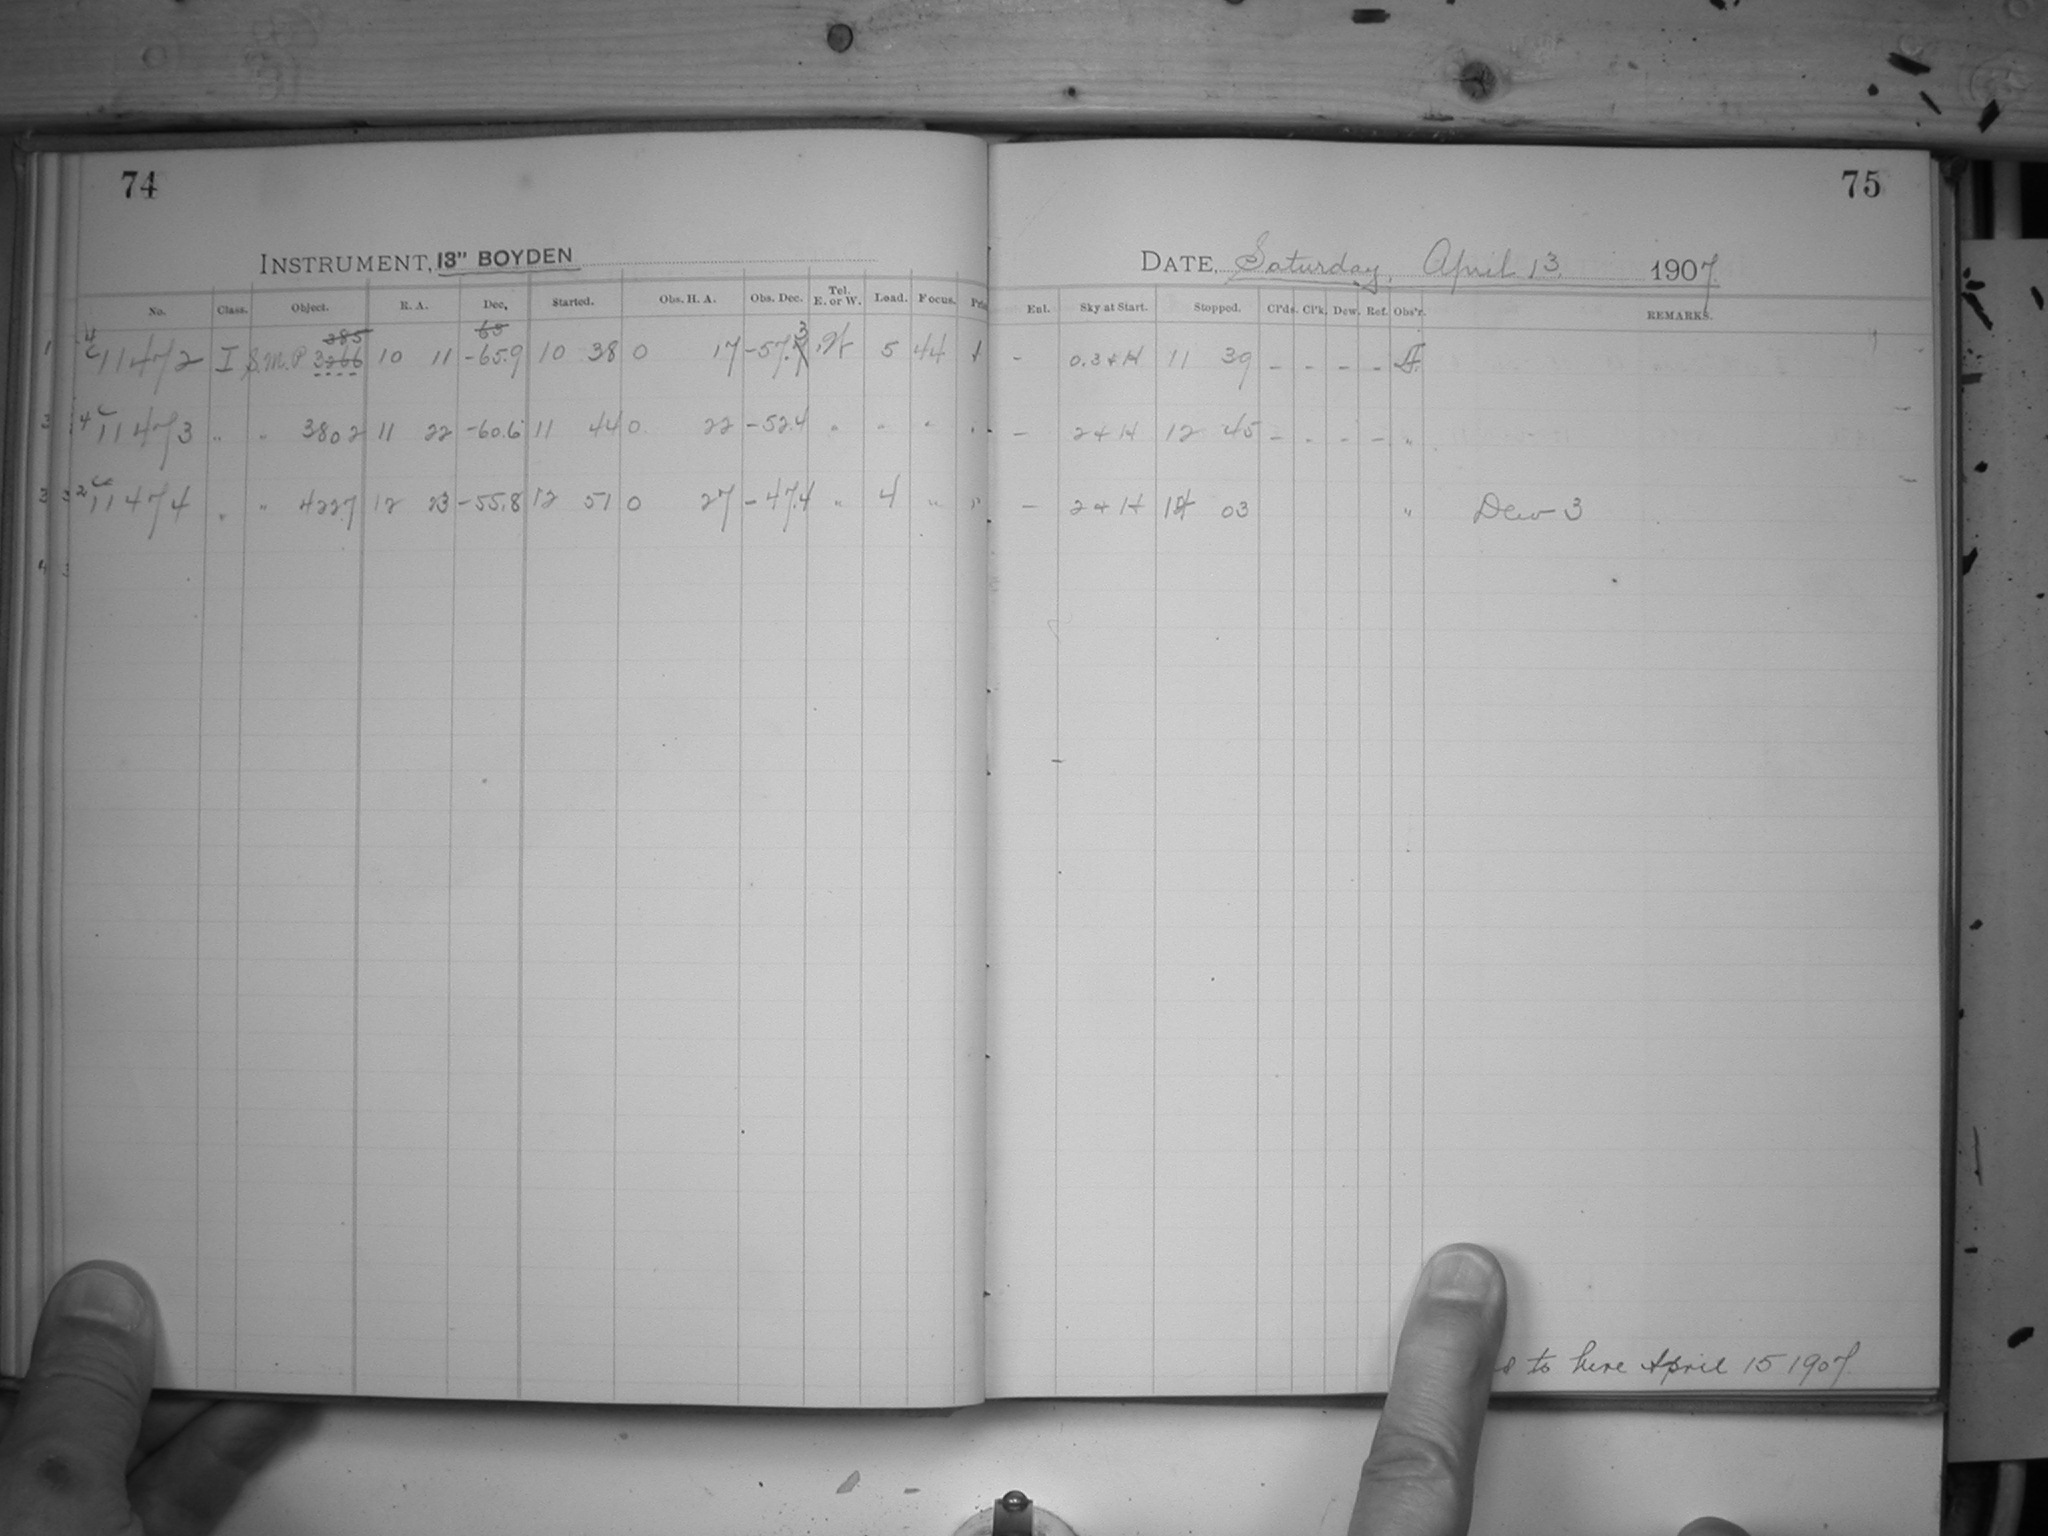 74
INSTRUMENT, 13" BOYDEN
No. Class. Object. R. A. Dec. Started. Obs. H. A. Obs. Dec. Tel. E. or W. Load. Focus.
385 65 3
11472 I S.M.P. 3266 10 11 -65.9 10 38 0 17 -57. 5 44
11473 " " 3802 11 22 -60.6 11 44 0 22 -52.4 " " "
11474 " " 4227 12 23 -55.8 12 51 0 27 -47.4 " 4 " "
75
DATE, Saturday, April 13. 1907.
Enl. Sky at Start. Stopped. Cl'ds. Cl'k. Dew. Ref. Obs'r. REMARKS.
- 0.3 & H 11 39 - - - -
- 2 & H 12 45 - - - - "
- 2 & H 03 " Dew 3
to here April 15 1907.